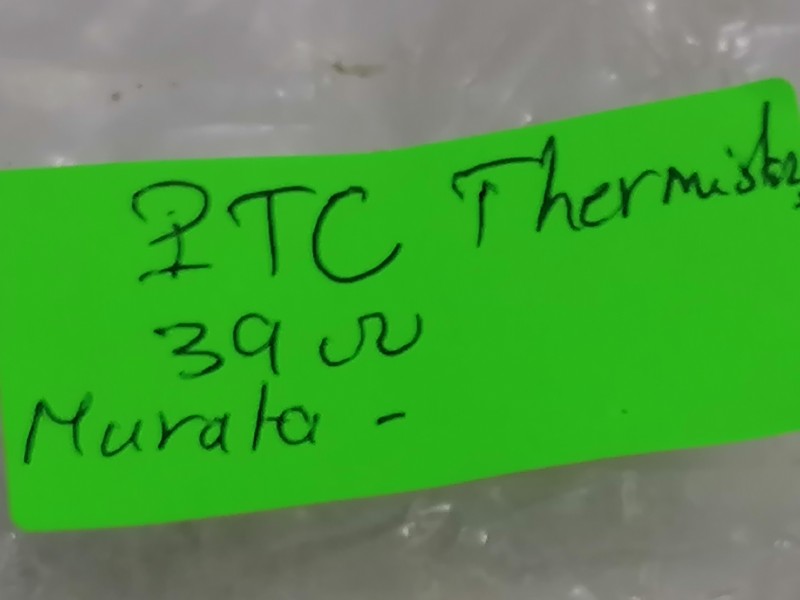 PTC Thermistor
39 Ω
Murata -